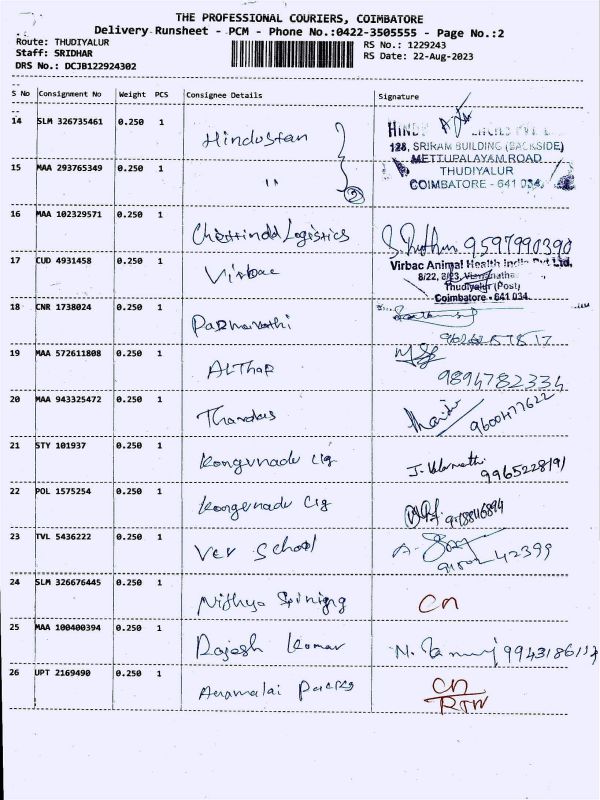 THE PROFESSIONAL COURIERS, COIMBATORE
Delivery Runsheet - PCM - Phone No.:0422-3505555 - Page No.:2
Route: THUDIYALUR
Staff: SRIDHAR
DRS No.: DCJB122924302
RS No.: 1229243
RS Date: 22-Aug-2023
S No Consignment No Weight PCS Consignee Details Signature
14 SLM 326735461 0.250 1 Hindustan
128, SRIRAM BUILDING (BACKSIDE)
METTUPALAYAM ROAD
THUDIYALUR
COIMBATORE - 641 034.
15 MAA 293765349 0.250 1 "
16 MAA 102329571 0.250 1 Logistics 9597990390
17 CUD 4931458 0.250 1 Virbac
Virbac Animal Health India Pvt Ltd.
8/22, 8/23,
Thudiyalur (Post)
Coimbatore - 641 034.
18 CNR 1738024 0.250 1 Padmavathi
19 MAA 572611808 0.250 1 AlThaf 9894782334
20 MAA 943325472 0.250 1 9600477622
21 STY 101937 0.250 1 Kongunadu clg 9965228191
22 POL 1575254 0.250 1 Kongunadu clg
23 TVL 5436222 0.250 1 Vev School
24 SLM 326676445 0.250 1 Nithya CN
25 MAA 100400394 0.250 1 Rajesh Kumar
26 UPT 2169490 0.250 1 CN
RTN